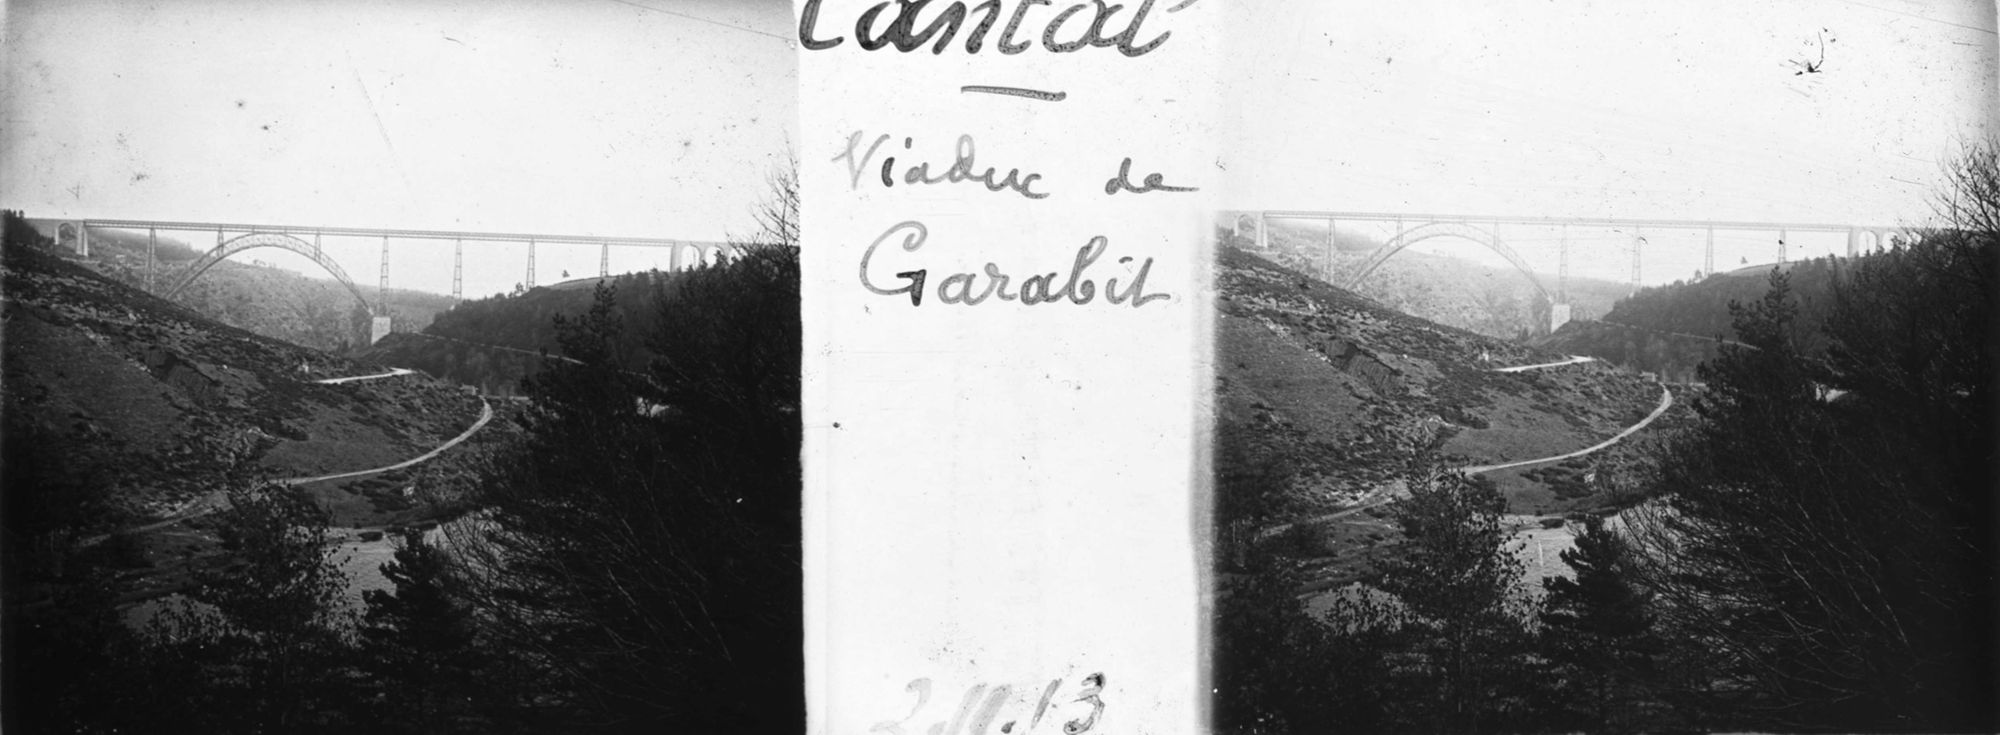 Cantal
Viaduc de
Garabit
2.11.13